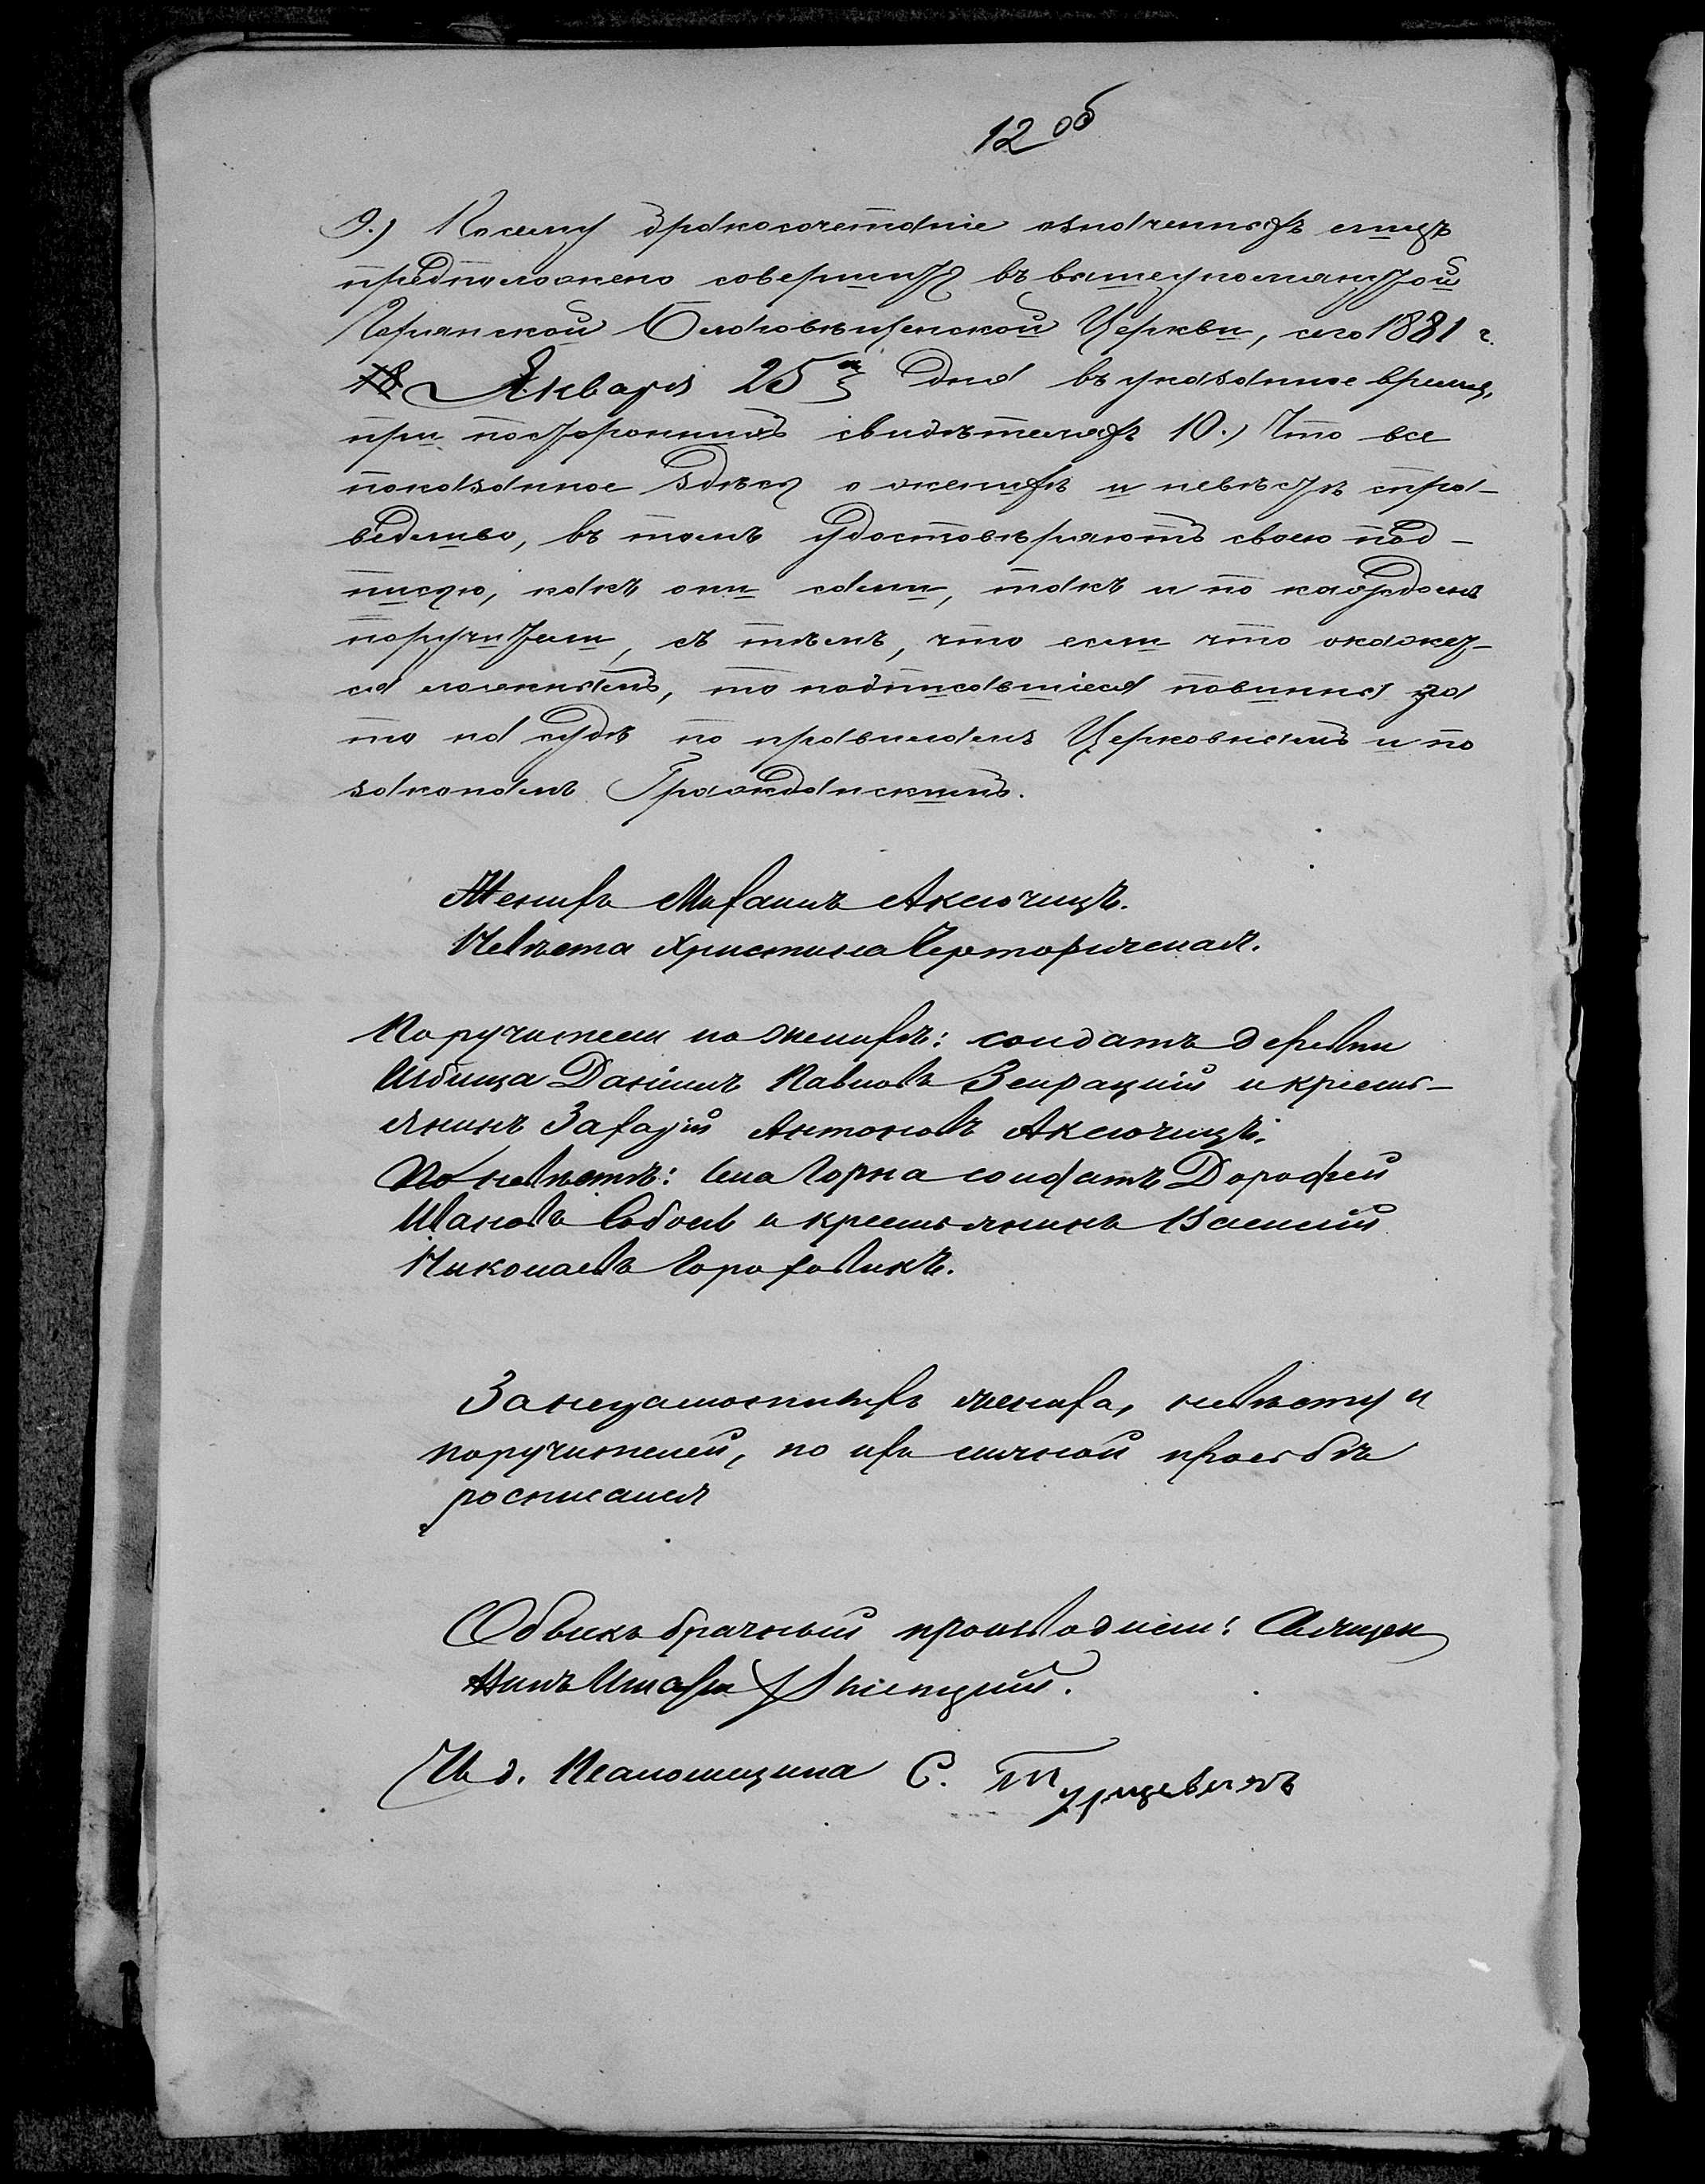 12 об
9.) Посему бракосочетаніе означенныхъ лицъ
предположено совершить въ вышеупомянутой
Горянской Благовѣщенской Церкви, сего 1881 г.
Января 25 дня въ указанное время,
при постороннихъ свидѣтеляхъ 10.) Что все
показанное здѣсь о женихѣ и невѣстѣ спра-
ведливо, въ томъ удостовѣряютъ своею под-
писью, какъ они сами, такъ и по каждомъ
поручители, съ тѣмъ, что если что окажет-
ся ложнымъ, то подписавшіеся повинны за
то на судѣ по правиламъ Церковнымъ и по
законамъ Гражданскимъ.
Женихъ Михаилъ Аксючицъ.
Невѣста Христина Черторижская.
Поручители по женихѣ: солдатъ деревни
Даніилъ Павловъ и кресть-
янинъ Захарій Антоновъ Аксючицъ.
По невѣстѣ: села Горна солдатъ Дорофей
Ивановъ и крестьянинъ Василій
Николаевъ Гороховикъ.
За неграмотныхъ жениха, невѣсту и
поручителей, по ихъ личной просьбѣ
росписался
Обыскъ брачный производили: Священ
никъ
И. д. Псаломщика С. Турцевичъ